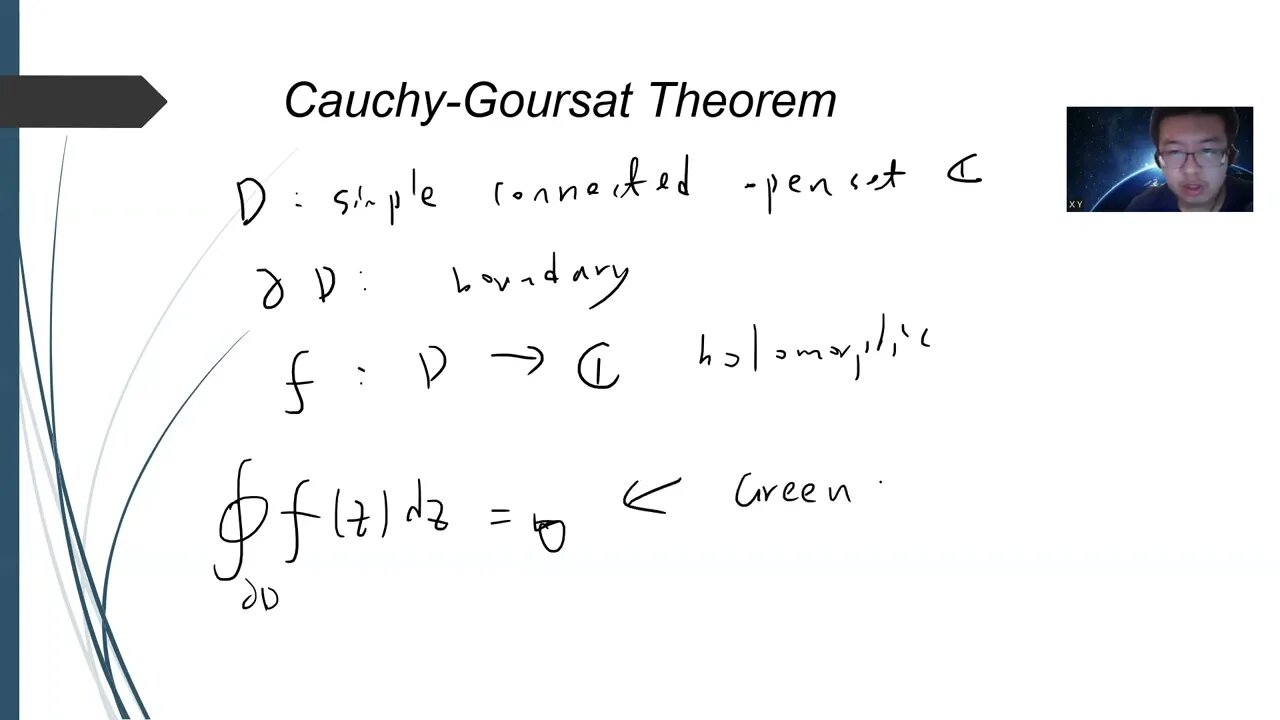 Cauchy-Goursat Theorem
D : simple connected open set ℂ
∂D : boundary
f : D → ℂ holomorphic
∮_∂D f(z) dz = 0 ← Green
X Y